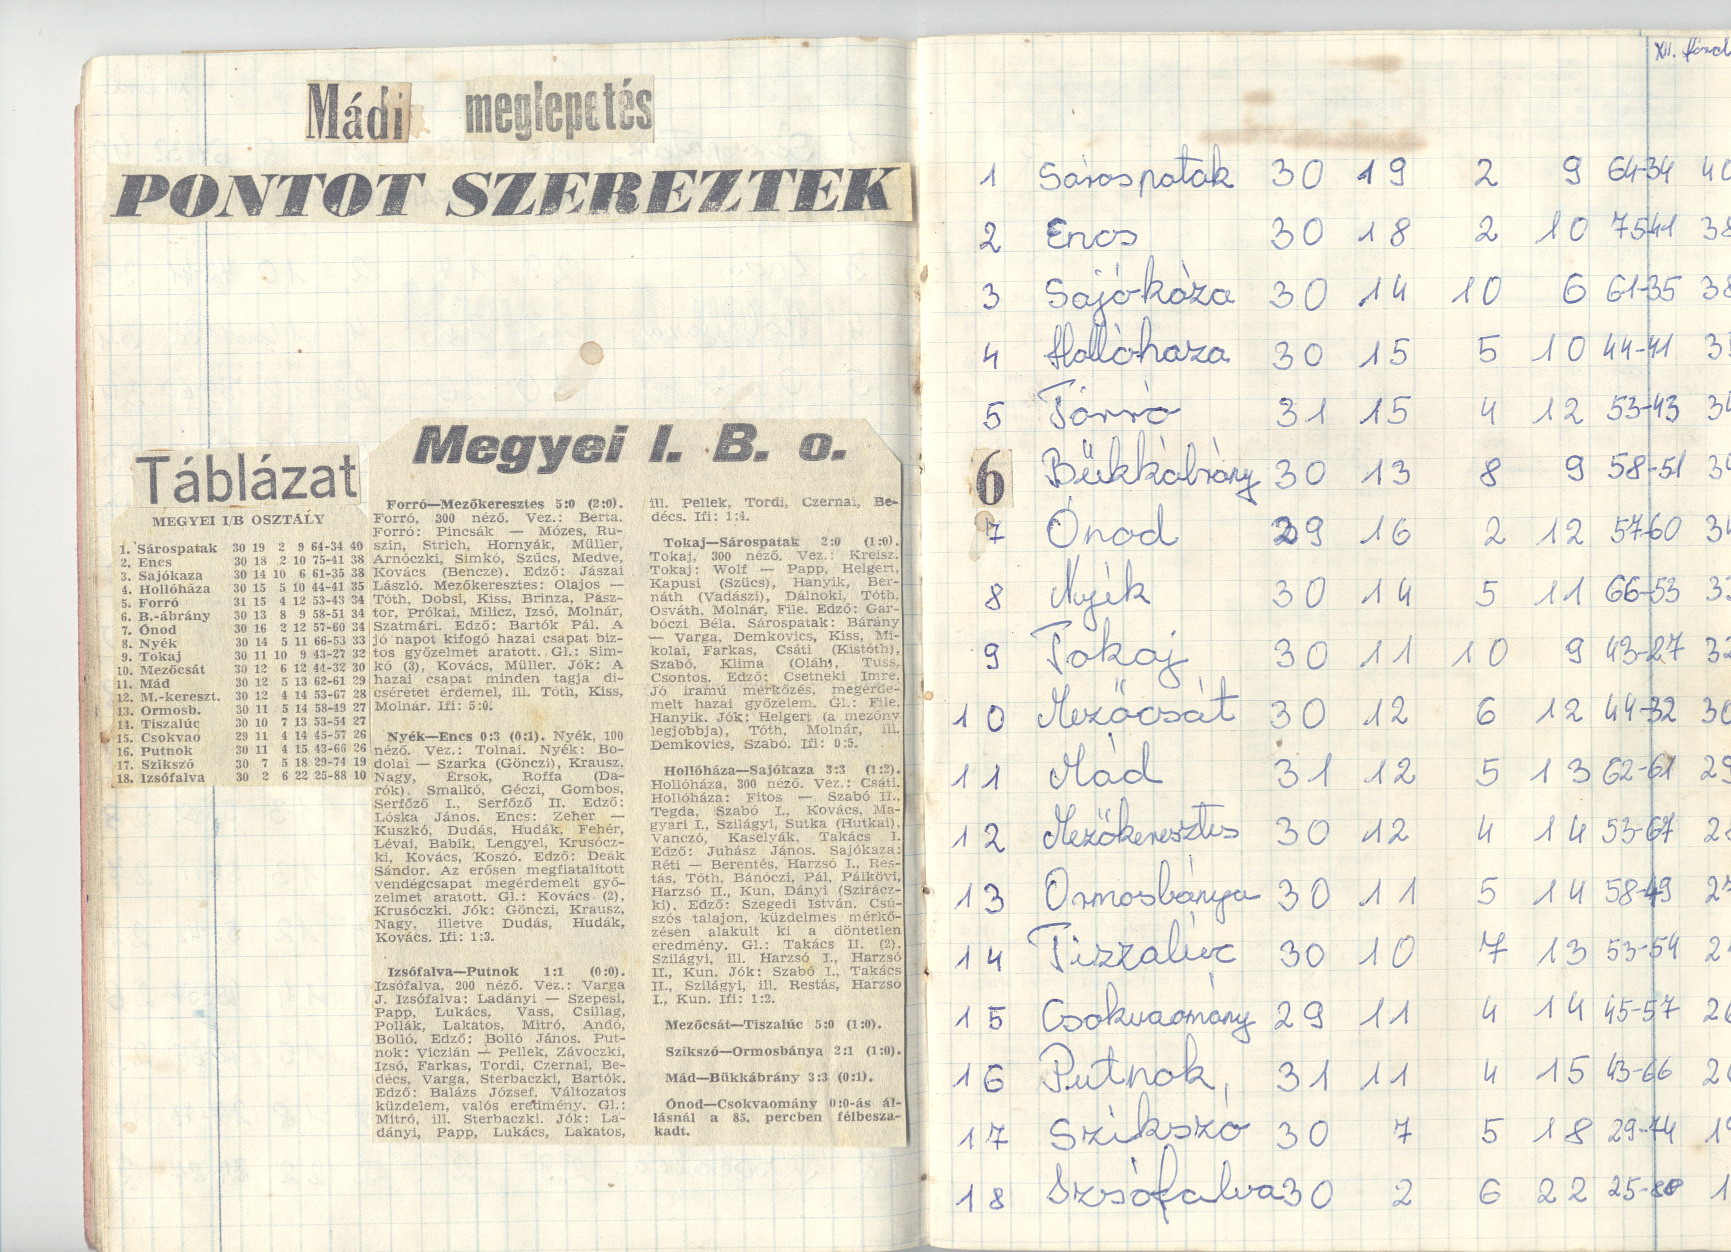 Mádi meglepetés
PONTOT SZEREZTEK
Táblázat
MEGYEI I/B OSZTÁLY
1. Sárospatak 30 19 2 9 64-34 40
2. Encs 30 18 2 10 75-41 38
3. Sajókaza 30 14 10 6 61-35 38
4. Hollóháza 30 15 5 10 44-41 35
5. Forró 31 15 4 12 53-43 34
6. B.-ábrány 30 13 8 9 58-51 34
7. Ónod 30 16 2 12 57-60 34
8. Nyék 30 14 5 11 66-53 33
9. Tokaj 30 11 10 9 43-27 32
10. Mezőcsát 30 12 6 12 44-32 30
11. Mád 30 12 5 13 62-61 29
12. M.-kereszt. 30 12 4 14 53-67 28
13. Ormosb. 30 11 5 14 58-49 27
14. Tiszalúc 30 10 7 13 53-54 27
15. Csokvao 29 11 4 14 45-57 26
16. Putnok 30 11 4 15 43-66 26
17. Szikszó 30 7 5 18 29-74 19
18. Izsófalva 30 2 6 22 25-88 10
Megyei I. B. o.
Forró—Mezőkeresztes 5:0 (2:0).
Forró, 300 néző. Vez.: Berta.
Forró: Pincsák — Mózes, Ru-
szin, Strich, Hornyák, Müller,
Arnóczki, Simkó, Szűcs, Medve,
Kovács (Bencze). Edző: Jászai
László. Mezőkeresztes: Olajos —
Tóth, Dobsi, Kiss, Brinza, Pász-
tor, Prókai, Milicz, Izsó, Molnár,
Szatmári. Edző: Bartók Pál. A
jó napot kifogó hazai csapat biz-
tos győzelmet aratott. Gl.: Sim-
kó (3), Kovács, Müller. Jók: A
hazai csapat minden tagja di-
cséretet érdemel, ill. Tóth, Kiss,
Molnár. Ifi: 5:0.
Nyék—Encs 0:3 (0:1). Nyék, 100
néző. Vez.: Tolnai. Nyék: Bo-
dolai — Szarka (Gönczi), Krausz,
Nagy, Érsok, Roffa (Da-
rók). Smalkó, Géczi, Gombos,
Serfőző I., Serfőző II. Edző:
Lóska János. Encs: Zeher —
Kuszkó, Dudás, Hudák, Fehér,
Lévai, Babik, Lengyel, Krusócz-
ki, Kovács, Koszó. Edző: Deák
Sándor. Az erősen megfiatalított
vendégcsapat megérdemelt győ-
zelmet aratott. Gl.: Kovács (2),
Krusóczki. Jók: Gönczi, Krausz,
Nagy, illetve Dudás, Hudák,
Kovács. Ifi: 1:3.
Izsófalva—Putnok 1:1 (0:0).
Izsófalva, 200 néző. Vez.: Varga
J. Izsófalva: Ladányi — Szepesi,
Papp, Lukács, Vass, Csillag,
Pollák, Lakatos, Mitró, Andó,
Bolló. Edző: Bolló János. Put-
nok: Viczián — Pellek, Závoczki,
Izsó, Farkas, Tordi, Czernai, Be-
décs, Varga, Sterbaczki, Bartók.
Edző: Balázs József. Változatos
küzdelem, valós eredmény. Gl.:
Mitró, ill. Sterbaczki. Jók: La-
dányi, Papp, Lukács, Lakatos,
ill. Pellek, Tordi, Czernai, Be-
décs. Ifi: 1:4.
Tokaj—Sárospatak 2:0 (1:0).
Tokaj, 300 néző. Vez.: Kreisz.
Tokaj: Wolf — Papp, Helgert,
Kapusi (Szücs), Hanyik, Ber-
náth (Vadászi), Dálnoki, Tóth,
Osváth, Molnár, File. Edző: Gar-
bóczi Béla. Sárospatak: Bárány
— Varga, Demkovics, Kiss, Mi-
kolai, Farkas, Csáti (Kistóth),
Szabó, Klima (Oláh), Tuss,
Csontos. Edző: Csetneki Imre.
Jó iramú mérkőzés, megérde-
melt hazai győzelem. Gl.: File,
Hanyik. Jók: Helgert (a mezőny
legjobbja), Tóth, Molnár, ill.
Demkovics, Szabó. Ifi: 0:5.
Hollóháza—Sajókaza 3:3 (1:2).
Hollóháza, 300 néző. Vez.: Csáti.
Hollóháza: Fitos — Szabó II.,
Tegda, Szabó I., Kovács, Ma-
gyari I., Szilágyi, Sutka (Hutkai),
Vanczó, Kaselyák, Takács I.
Edző: Juhász János. Sajókaza:
Réti — Berentés, Harzsó I., Res-
tás, Tóth, Bánóczi, Pál, Pálkövi,
Harzsó II., Kun, Dányi (Szirácz-
ki). Edző: Szegedi István. Csú-
szós talajon, küzdelmes mérkő-
zésen alakult ki a döntetlen
eredmény. Gl.: Takács II. (2),
Szilágyi, ill. Harzsó I., Harzsó
II., Kun. Jók: Szabó I., Takács
II., Szilágyi, ill. Restás, Harzsó
I., Kun. Ifi: 1:2.
Mezőcsát—Tiszalúc 5:0 (1:0).
Szikszó—Ormosbánya 2:1 (1:0).
Mád—Bükkábrány 3:3 (0:1).
Ónod—Csokvaomány 0:0-ás ál-
lásnál a 85. percben félbesza-
kadt.
XII.
1 Sárospatak 30 19 2 9 64-34 40
2 Encs 30 18 2 10 75-41 38
3 Sajó-káza 30 14 10 6 61-35 38
4 Hollóháza 30 15 5 10 44-41
5 Forró 31 15 4 12 53-43 34
6 Bükkábrány 30 13 8 9 58-51 34
7 Ónod 29 16 2 12 57-60 34
8 Nyék 30 14 5 11 66-53
9 Tokaj 30 11 10 9 43-27 32
10 Mezőcsát 30 12 6 12 44-32 30
11 Mád 31 12 5 13 62-61 29
12 Mezőkeresztes 30 12 4 14 53-67
13 Ormosbánya 30 11 5 14 58-49 27
14 Tiszalúc 30 10 7 13 53-54
15 Csokvaomány 29 11 4 14 45-57 26
16 Putnok 31 11 4 15 43-66 26
17 Szikszó 30 7 5 18 29-74 19
18 Izsófalva 30 2 6 22 25-88 1